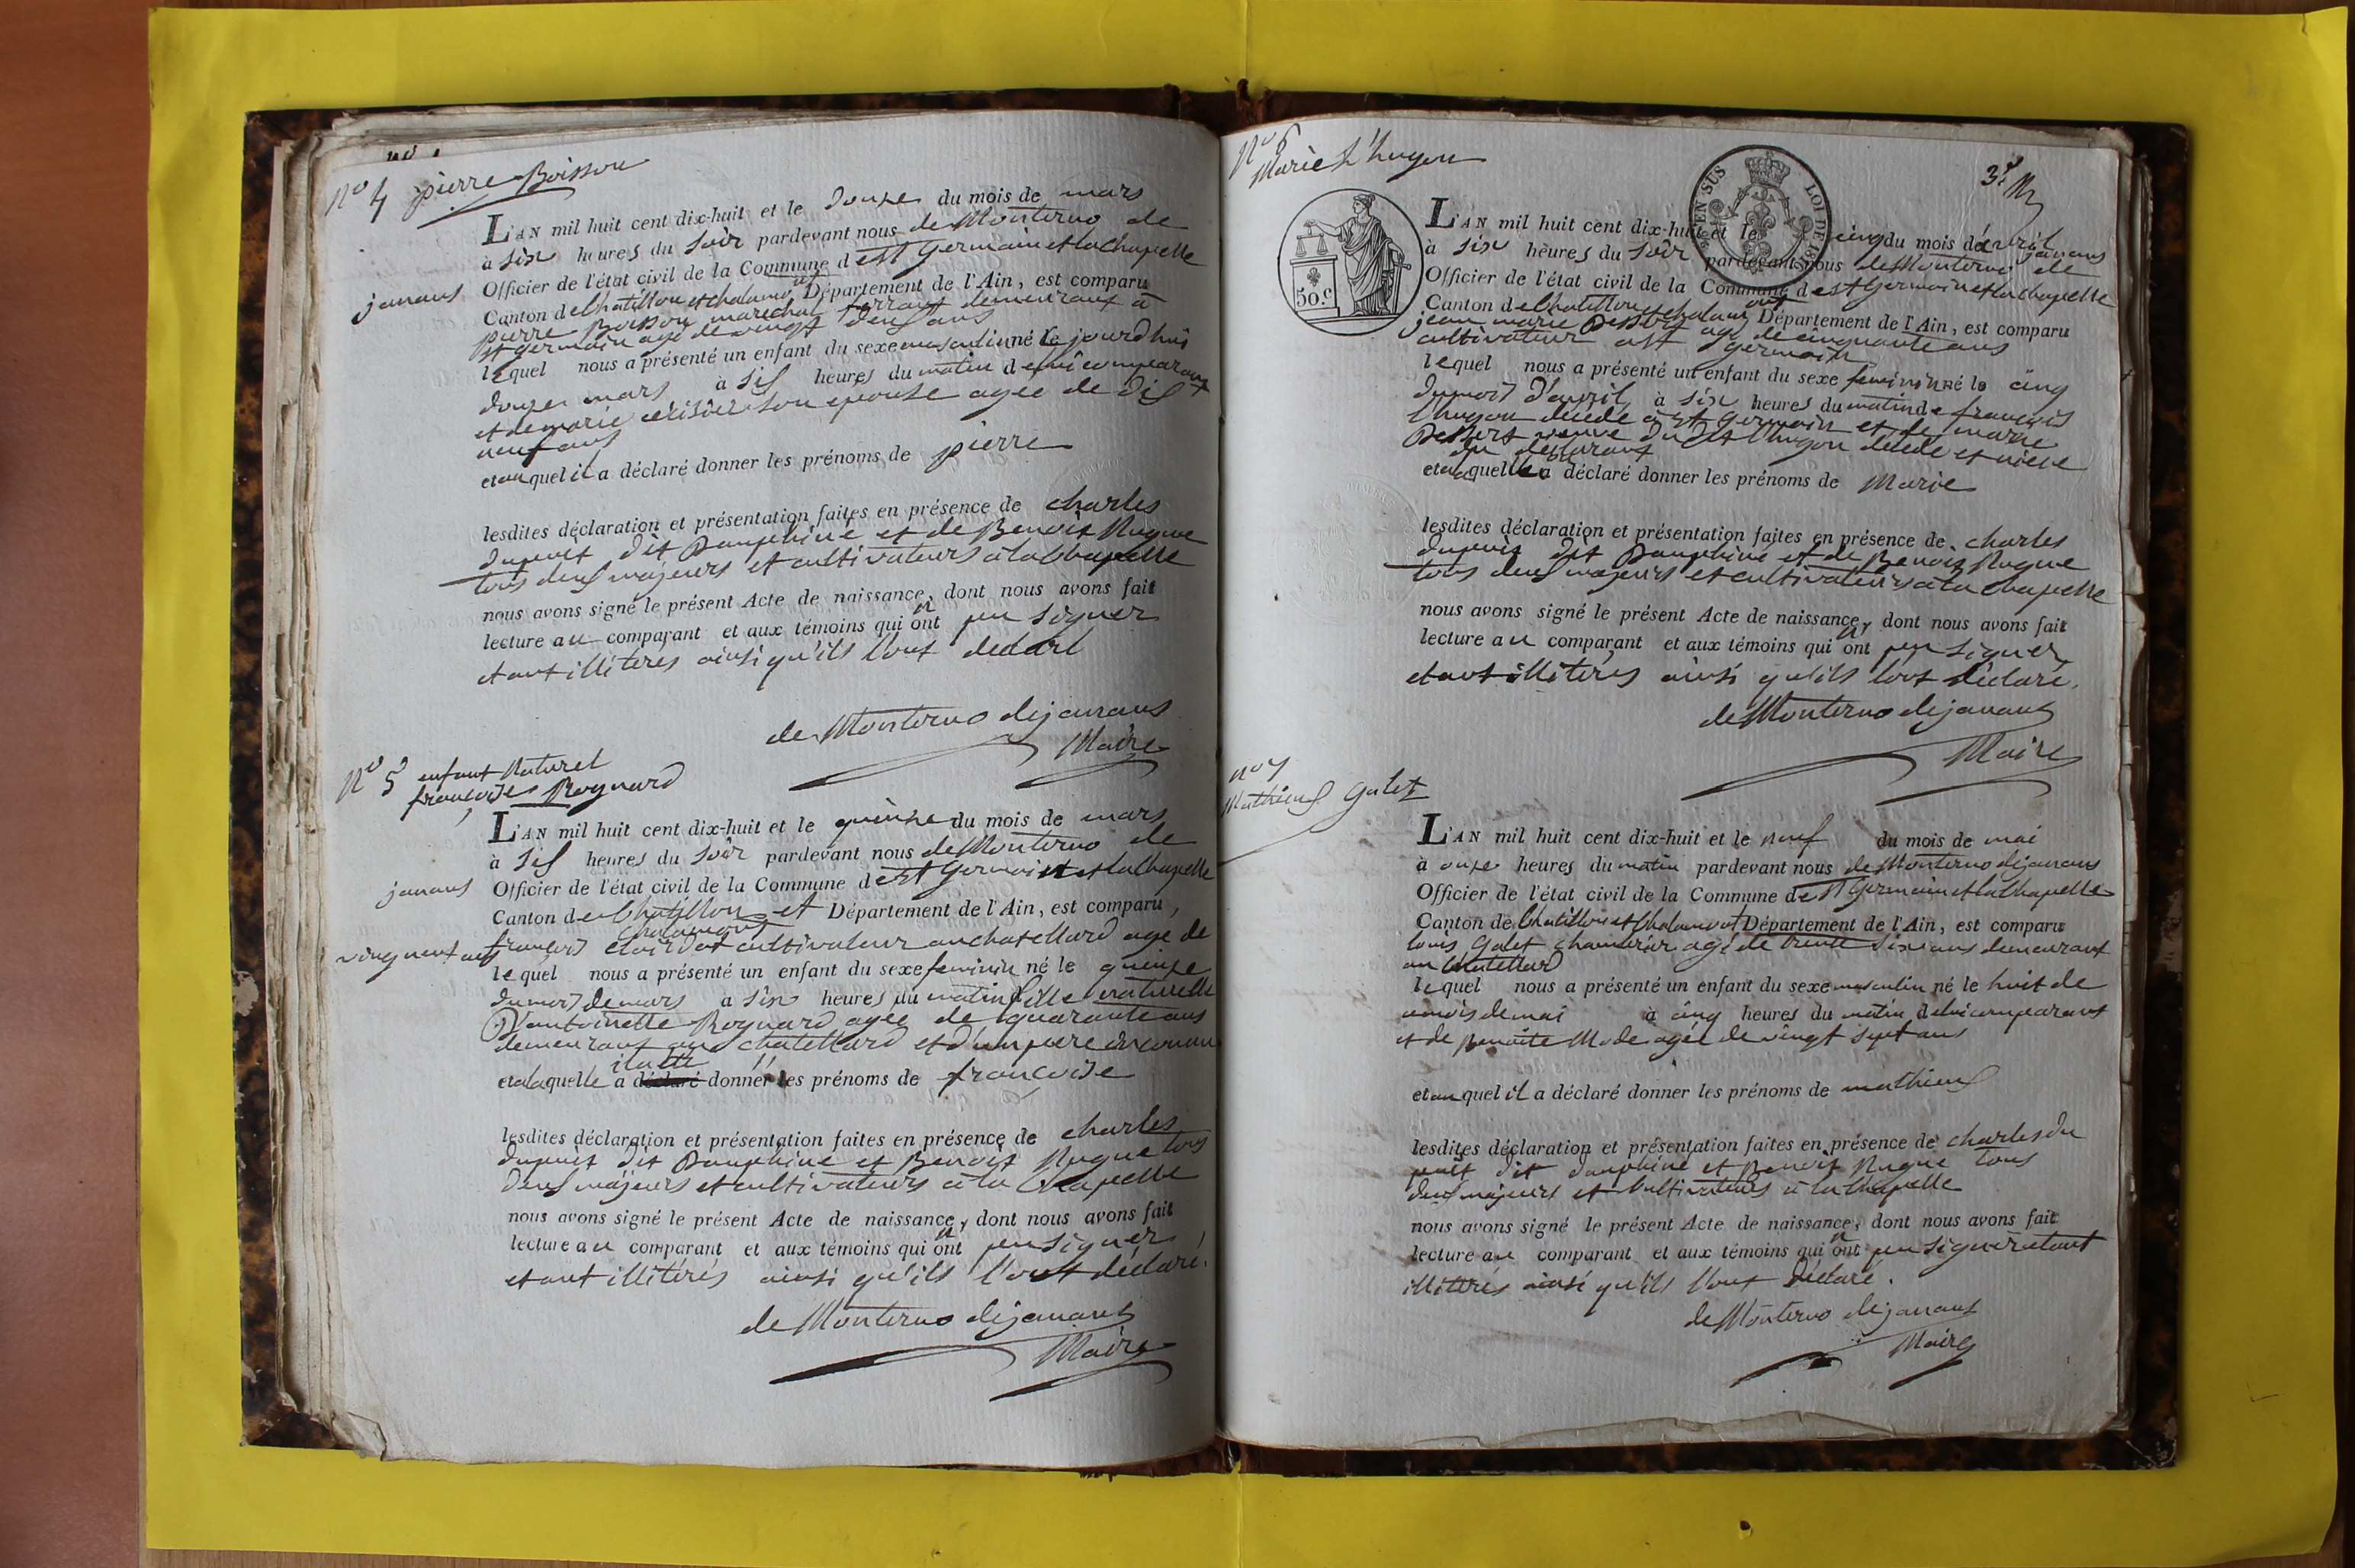 No 4 pierre Boisson
L'AN mil huit cent dix-huit et le douze du mois de mars
à six heures du soir pardevant nous de Monterno de
janans
Officier de l'état civil de la Commune de st Germain et la Chapelle
Canton de Chatillon et chalamont Département de l'Ain, est comparu
pierre Boisson marechal ferrant demeurant à
st germain agé de vingt deuf ans
lequel nous a présenté un enfant du sexe masculin né le jourd'hui
douze mars à sif heures du matin de lui comparant
et de marie son epouse agee de dif
neuf ans
et auquel il a déclaré donner les prénoms de pierre
lesdites déclaration et présentation faites en présence de charles
dupuit dit Dauphiné et de Benoit Nugue
tous deuf majeurs et cultivateurs à la Chapelle
nous avons signé le présent Acte de naissance, dont nous avons fait
lecture au comparant et aux témoins qui n'ont peu signer
etant illiteres ainsi qu'ils l'ont declaré
de Monterno dejanans
Maire
No 5 enfant Naturel
francoise Rognard
L'AN mil huit cent dix-huit et le quinze du mois de mars
à sif heures du soir pardevant nous de Monterno de
janans
Officier de l'état civil de la Commune de st Germain et la Chapelle
Canton de Chatillon et Département de l'Ain, est comparu,
chalamont
francois cultivateur au chatellard age de
vingt neuf ans
lequel nous a présenté un enfant du sexe feminin né le quinze
du mois de mars à six heures du matin fille naturelle
d'antoinette Rognard agee de quarante ans
demeurant au chatellard et d'un pere inconnu
et a laquelle il a déclaré donner les prénoms de francoise
lesdites déclaration et présentation faites en présence de charles
dupuit dit Dauphiné et Benoit Nugue tous
deuf majeurs et cultivateurs à la Chapelle
nous avons signé le présent Acte de naissance, dont nous avons fait
lecture au comparant et aux témoins qui n'ont peu signer,
etant illitérés ainsi qu'ils l'ont déclaré.
de Monterno dejanans
Maire
No 6
Marie L'hugon
3e
EN SUS LOI DE 18
50.c
L'AN mil huit cent dix-huit et le cinq du mois d'avril
à six heures du soir pardevant nous de Monterno de janans
Officier de l'état civil de la Commune de st Germain et la Chapelle
Canton de Chatillon et chalamont Département de l'Ain, est comparu
jean marie agé de cinquante ans
cultivateur a st germain
lequel nous a présenté un enfant du sexe feminin né le cinq
du mois d'avril à six heures du matin de francois
lhugon décédé à st Germain et de marie
veuve dudit lhugon décédé et niece
du déclarant
et a laquelle il a déclaré donner les prénoms de Marie
lesdites déclaration et présentation faites en présence de charles
dupuis dit Dauphiné et de Benoit Nugue
tous deuf majeurs et cultivateurs à la Chapelle
nous avons signé le présent Acte de naissance, dont nous avons fait
lecture au comparant et aux témoins qui n'ont peu signer
etant illitérés ainsi qu'ils l'ont déclaré.
de Monterno dejanans
Maire
no 7
Mathieuf Galet
L'AN mil huit cent dix-huit et le neuf du mois de mai
à onze heures du matin pardevant nous de Monterno dejanans
Officier de l'état civil de la Commune de st Germain et la Chapelle
Canton de Chatillon et Chalamont Département de l'Ain, est comparu
louis Galet agé de trente six ans demeurant
au Chatellard
lequel nous a présenté un enfant du sexe masculin né le huit de
ce mois de mai à cinq heures du matin de lui comparant
et de benoite Mode agée de vingt sept ans
et auquel il a déclaré donner les prénoms de mathieuf
lesdites déclaration et présentation faites en présence de charles du
puit dit dauphiné et Benoit Nugue tous
deuf majeurs et cultivateurs à la Chapelle
nous avons signé le présent Acte de naissance, dont nous avons fait
lecture au comparant et aux témoins qui n'ont peu signer etant
illitérés ainsi qu'ils l'ont déclaré.
de Monterno dejanans
Maire